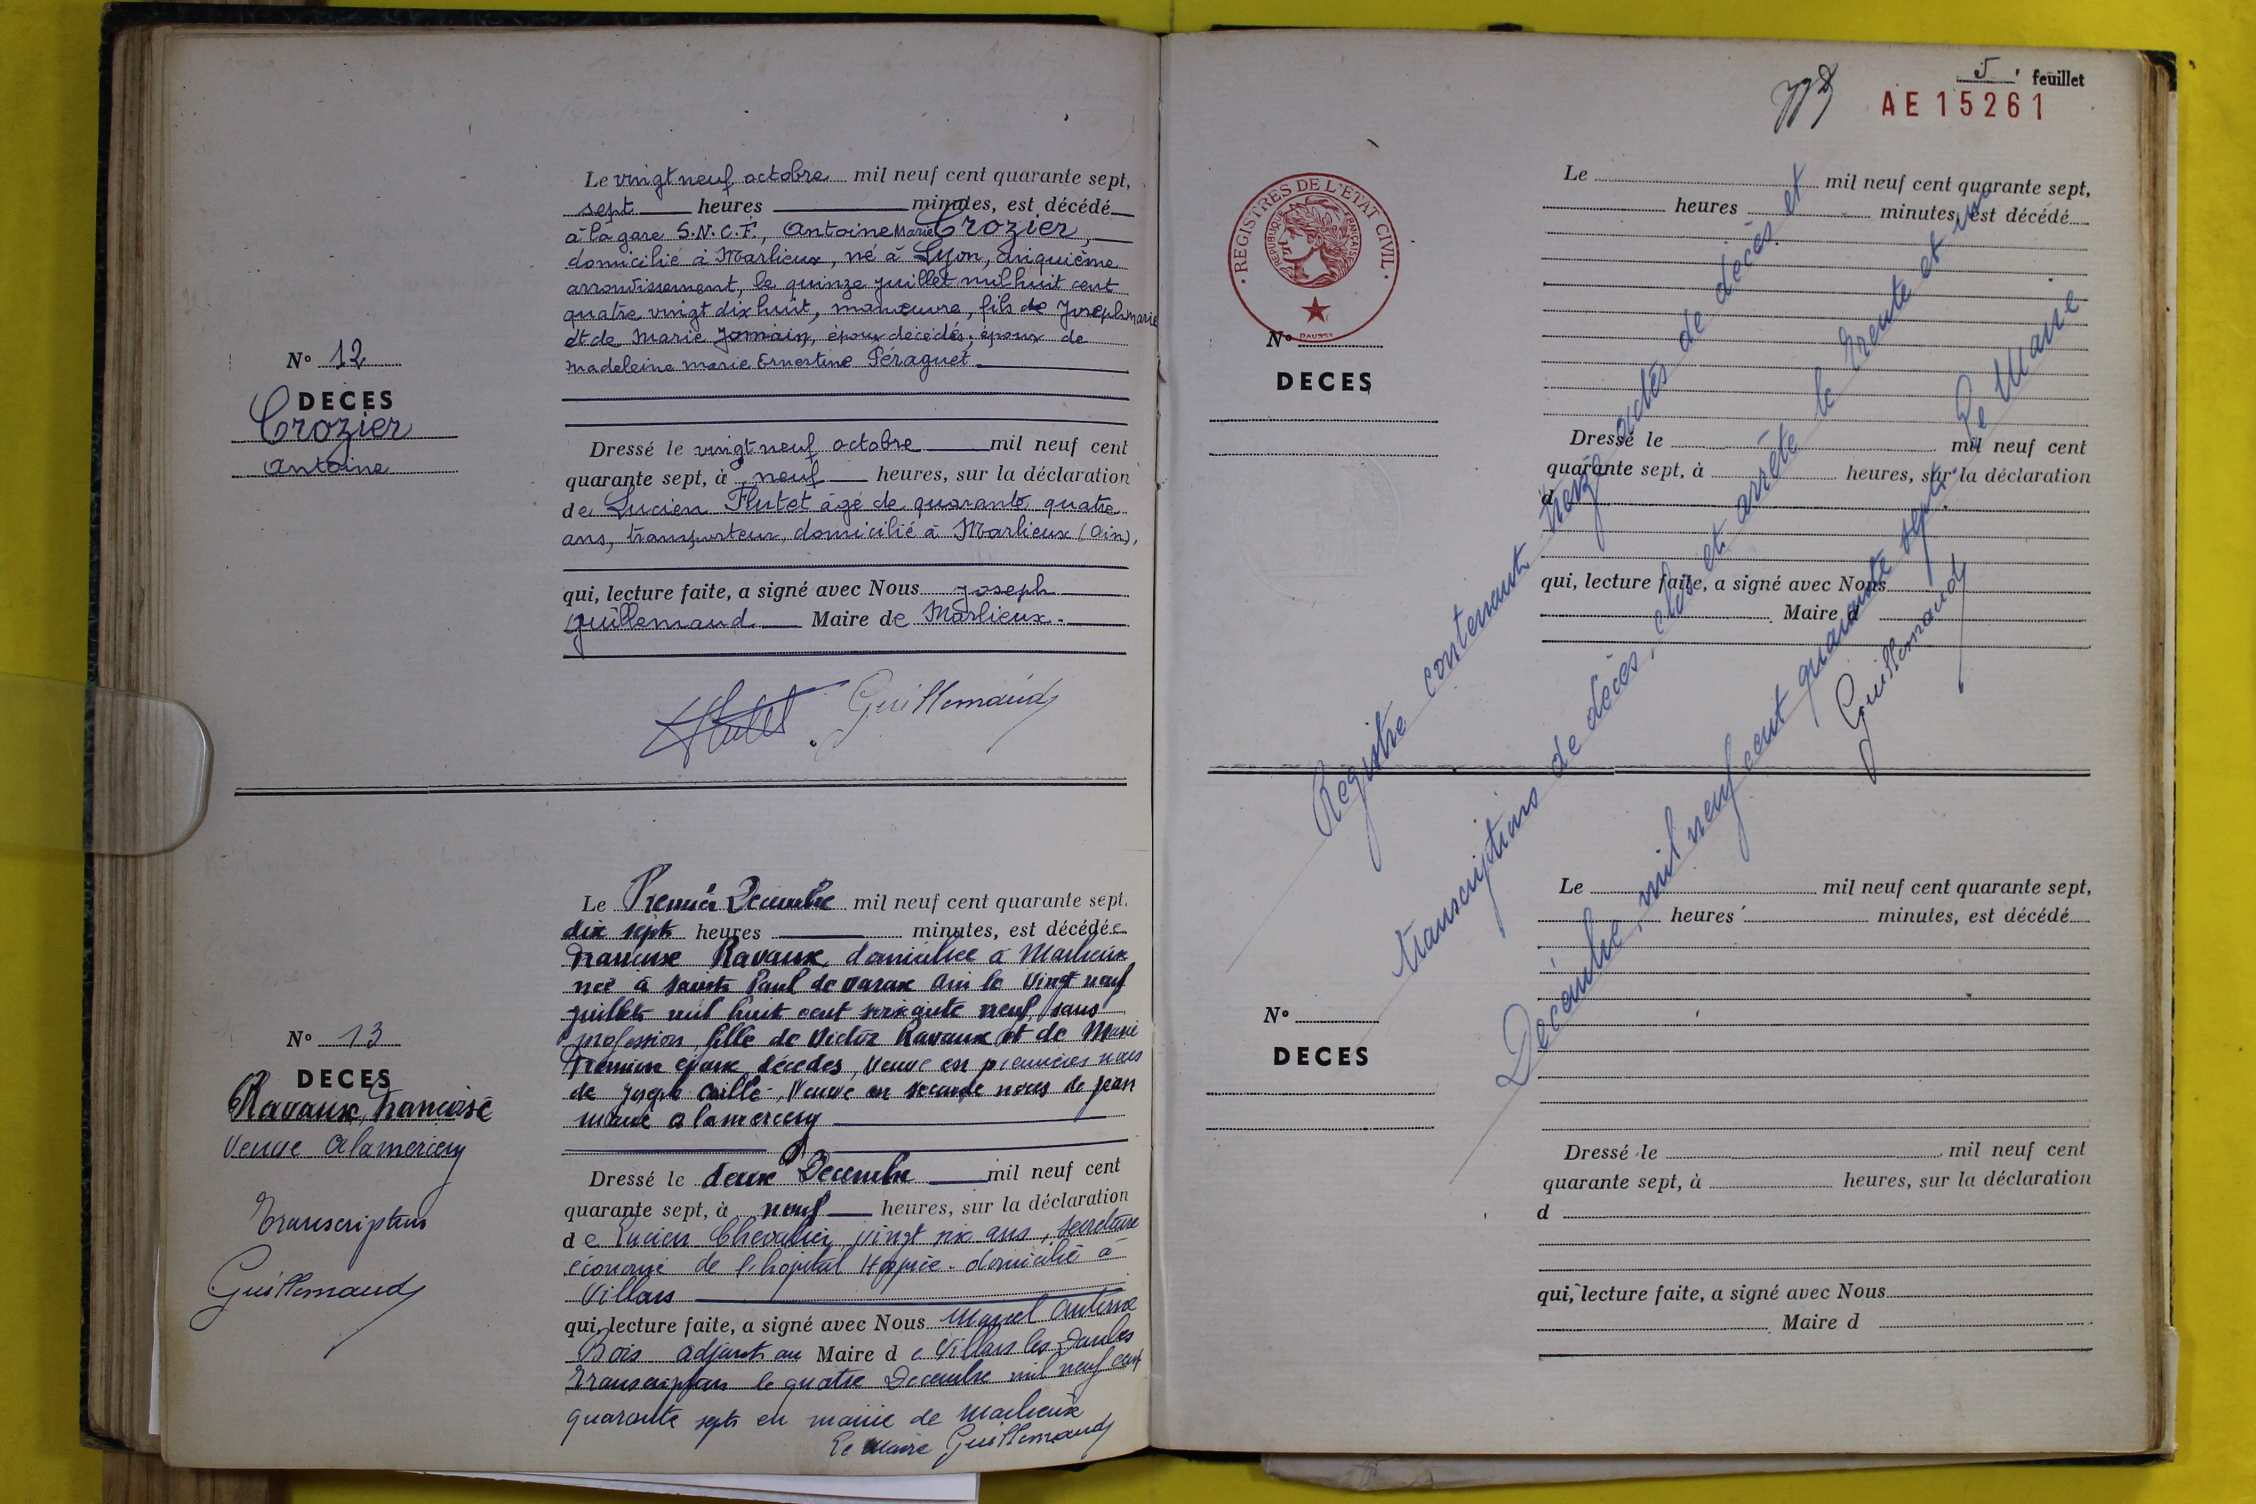 Le vingt neuf octobre mil neuf cent quarante sept,
sept heures minutes, est décédé
à la gare S.N.C.F., Antoine Marie Crozier,
domicilié à Marlieux, né à Lyon, cinquième
arrondissement, le quinze juillet mil huit cent
quatre vingt dix huit, manœuvre, fils de Joseph Marie
et de Marie Jomain, époux décédés; époux de
Madeleine Marie Ernestine Péraguet
N° 12
DECES
Crozier
Antoine
Dressé le vingt neuf octobre mil neuf cent
quarante sept, à neuf heures, sur la déclaration
de Lucien Flutet âgé de quarante quatre
ans, transporteur, domicilié à Marlieux (Ain),
qui, lecture faite, a signé avec Nous Joseph
Guillemaud Maire de Marlieux.
Flutet Guillemaud
Le Premier Décembre mil neuf cent quarante sept,
dix sept heures minutes, est décédée
Françoise Ravaux, domiciliée à Marlieux
née à Saint Paul de Varax Ain le vingt neuf
juillet mil huit cent soixante neuf, sans
profession, fille de Victor Ravaux et de Marie
époux décédés, Veuve en premières noces
de Joseph Veuve en seconde noces de Jean
Marie Alamercery
N° 13
DECES
Ravaux Françoise
Veuve Alamercery
Transcription
Guillemaud
Dressé le deux Décembre mil neuf cent
quarante sept, à neuf heures, sur la déclaration
de Lucien Chevalier, vingt six ans, secrétaire
économe de l'hôpital Hospice - domicilié à
Villars
qui, lecture faite, a signé avec Nous Marcel
Bois adjoint au Maire de Villars les Dombes
Transcription le quatre Décembre mil neuf cent
quarante sept en mairie de Marlieux
Le Maire Guillemaud
5 feuillet
AE 15261
REGISTRES DE L'ETAT CIVIL
REPUBLIQUE FRANÇAISE
Le mil neuf cent quarante sept,
heures minutes, est décédé
N°
DECES
Dressé le mil neuf cent
quarante sept, à heures, sur la déclaration
d
qui, lecture faite, a signé avec Nous
Maire d
Registre contenant treize actes de décès et
transcriptions de décès, clos et arrêté le trente et un
Décembre mil neuf cent quarante sept. Le Maire
Guillemaud
Le mil neuf cent quarante sept,
heures minutes, est décédé
N°
DECES
Dressé le mil neuf cent
quarante sept, à heures, sur la déclaration
d
qui, lecture faite, a signé avec Nous
Maire d